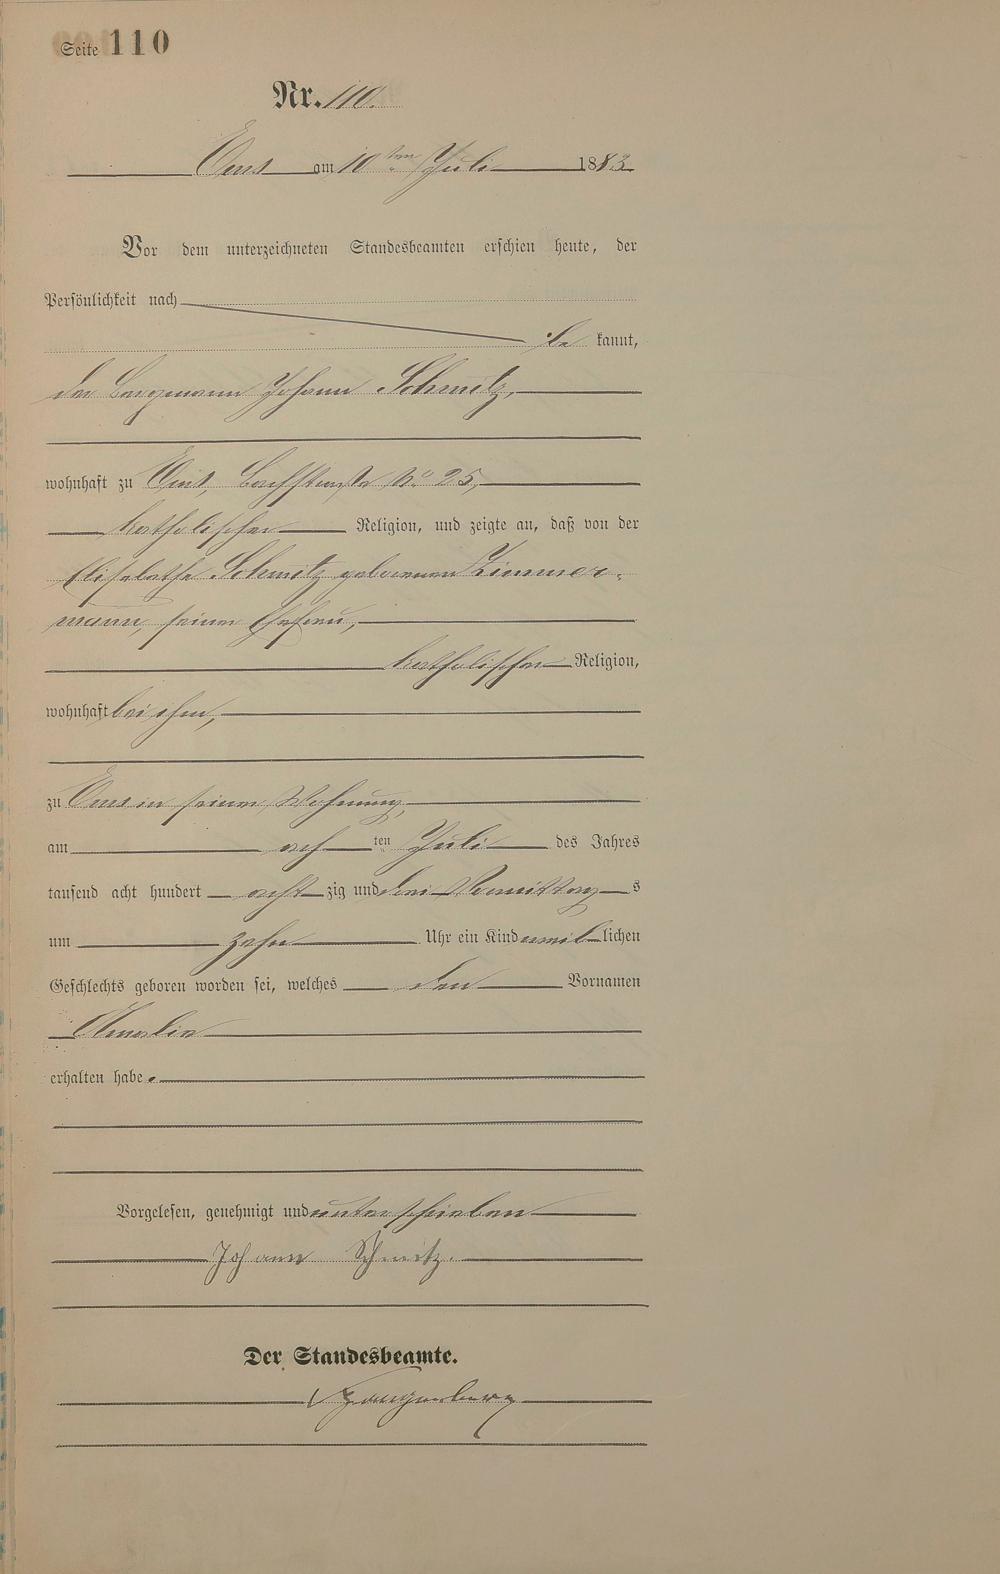 Seite 110
Nr. 110.
Ems am 10ten Juli 1883.
Vor dem unterzeichneten Standesbeamten erschien heute, der
Persönlichkeit nach
be kannt,
der Bergmann Johann Schmitz,
wohnhaft zu Ems, Bachstraße No 25,
katholischer Religion, und zeigte an, daß von der
Elisabetha Schmitz geborenen Zimmer-
mann, seiner Ehefrau,
katholischer Religion,
wohnhaft bei ihm,
zu Ems in seiner Wohnung,
am ach ten Juli des Jahres
tausend acht hundert acht zig und drei Vormittag s
um zehn Uhr ein Kind weib lichen
Geschlechts geboren worden sei, welches den Vornamen
erhalten habe.
Vorgelesen, genehmigt und unterschrieben
Johann Schmitz.
Der Standesbeamte.